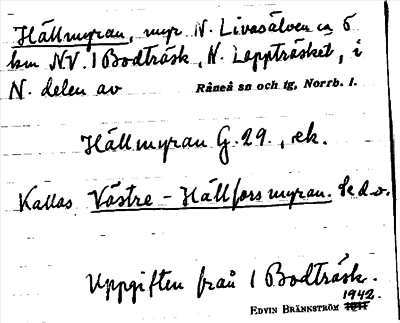 Hällmyran, myr N. Livasälven ca 5
km NV. 1 Bodträsk, N. Lappträsket, i
N. delen av Råneå sn och tg, Norrb. l.
Hällmyran G. 29., ek.
Kallas Västre - Hällforsmyran. Se d. o.
Uppgiften från 1 Bodträsk.
1942.
EDVIN BRÄNNSTRÖM